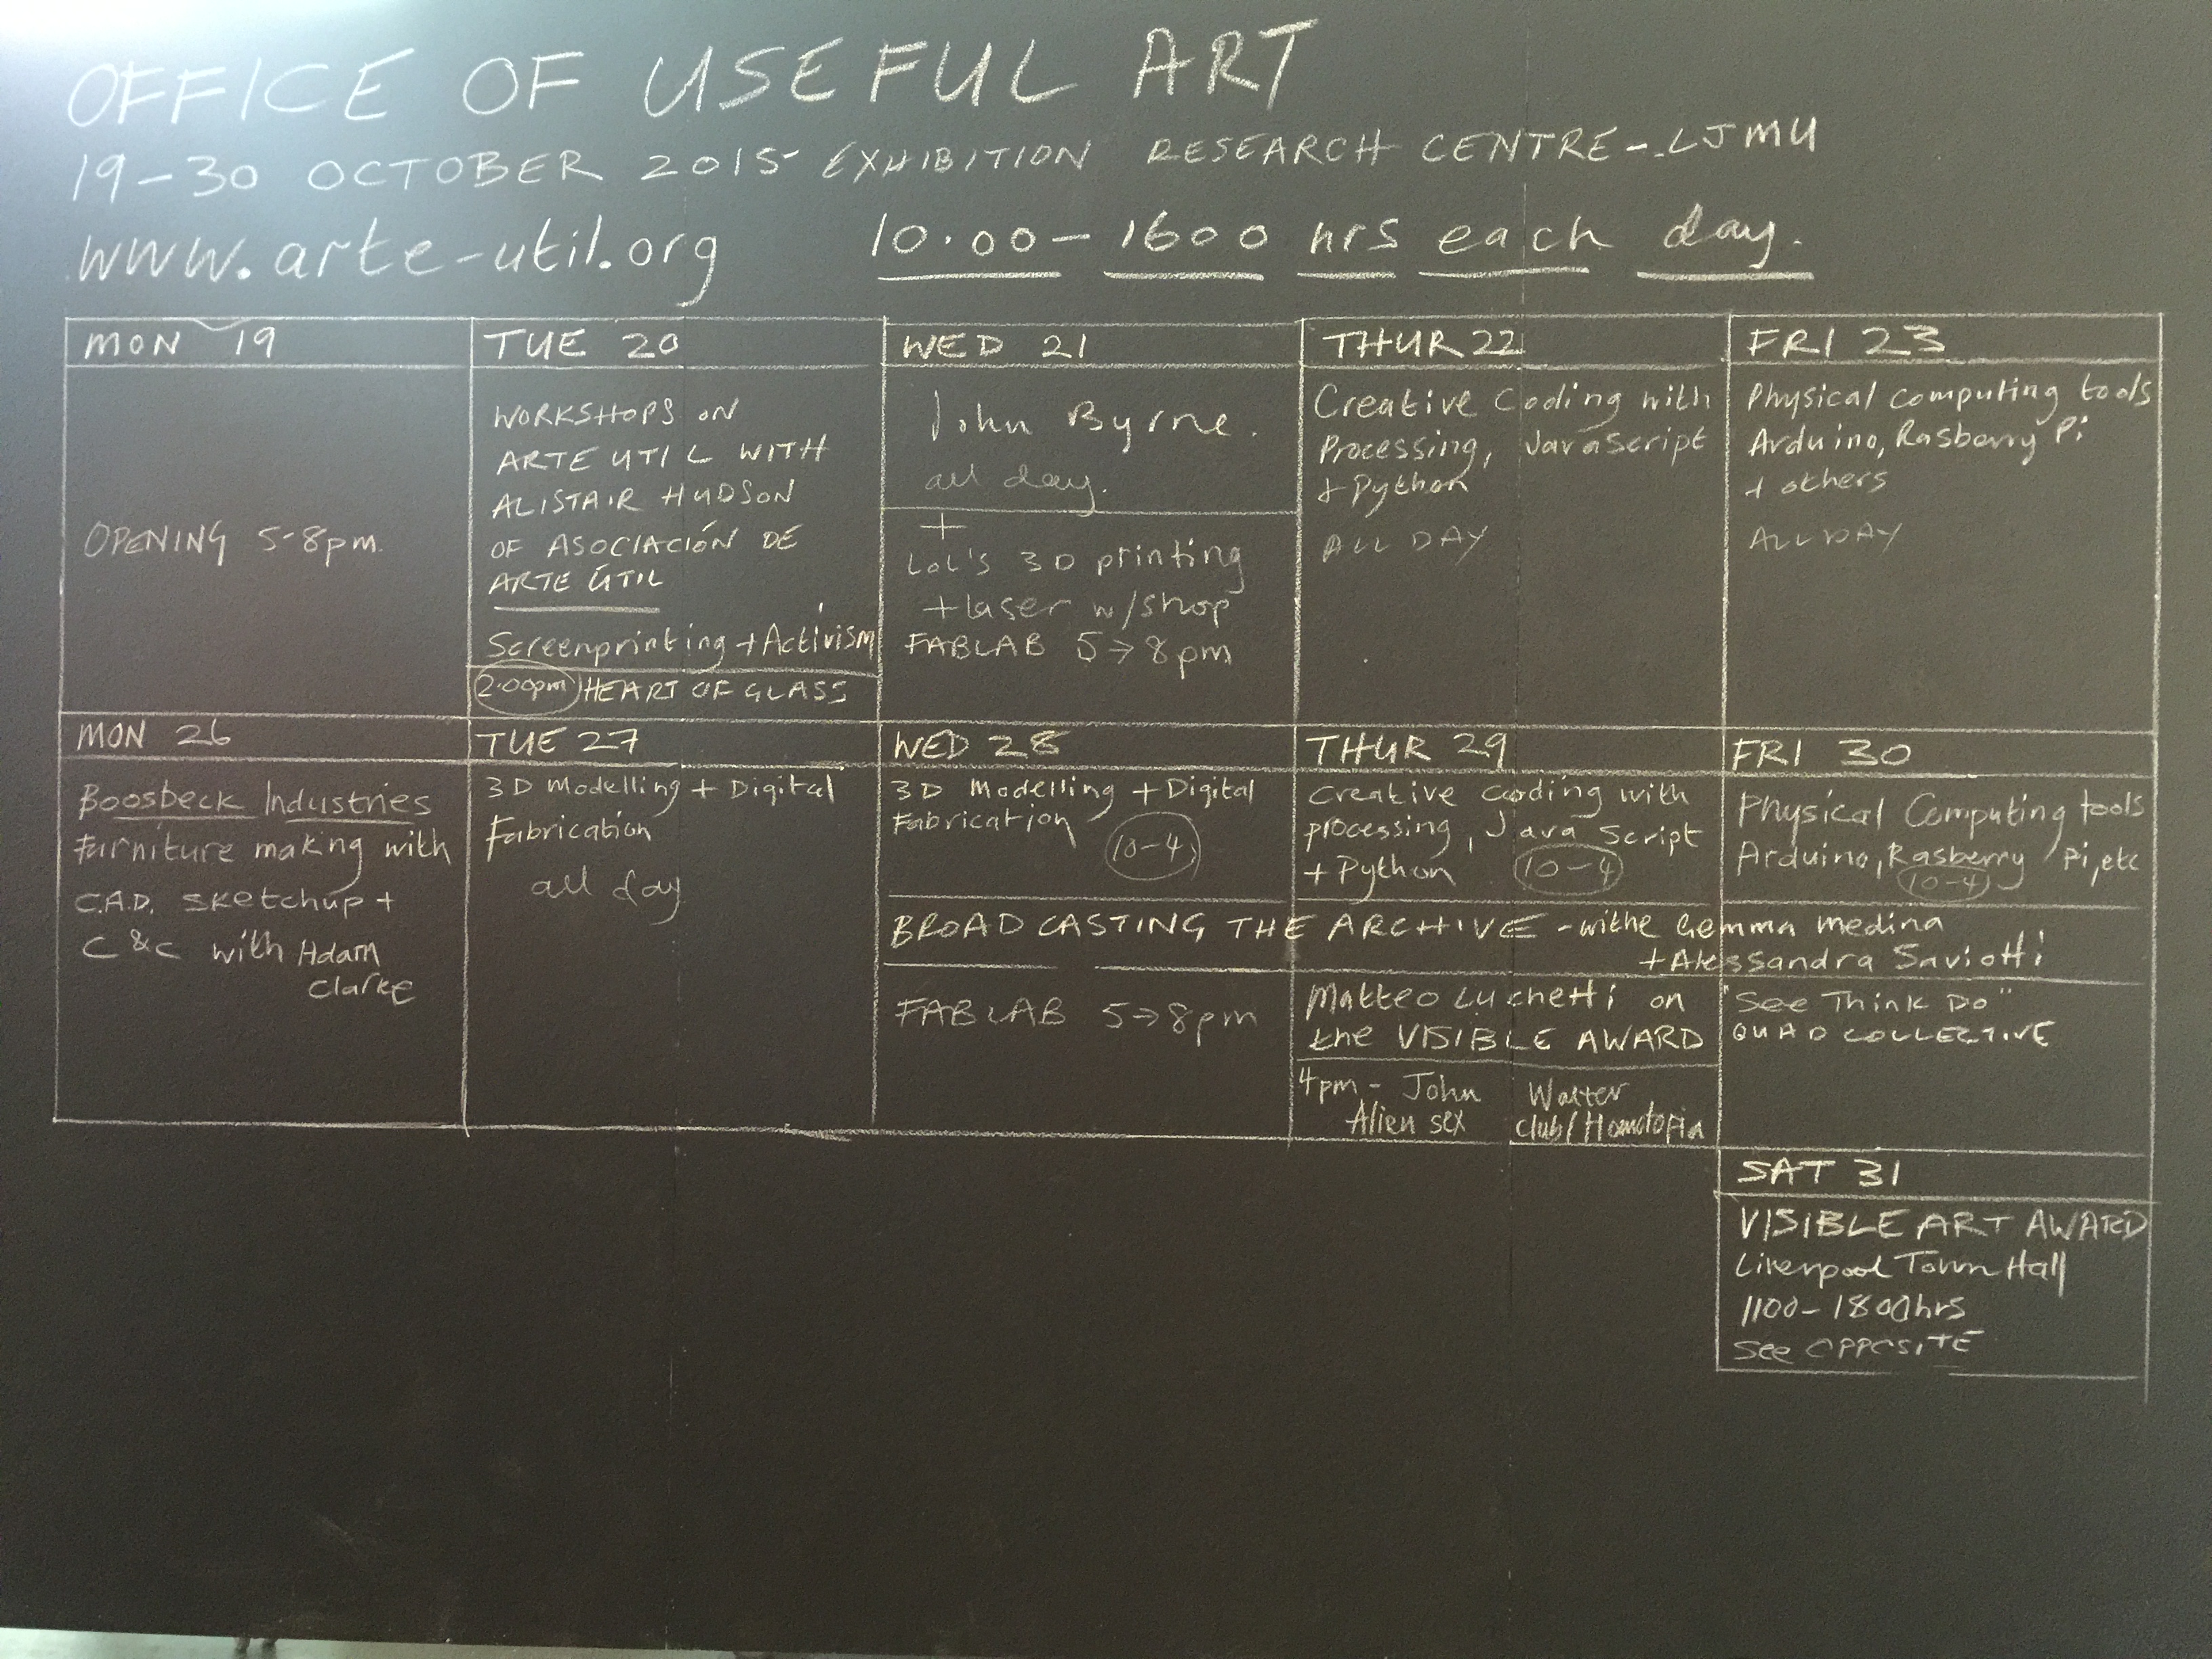 OFFICE OF USEFUL ART
19-30 OCTOBER 2015 EXHIBITION RESEARCH CENTRE-LJMU
www.arte-util.org 10.00-1600 hrs each day.
MON 19
OPENING 5-8pm.
TUE 20
WORKSHOPS ON
ARTE UTIL WITH
ALISTAIR HUDSON
OF ASOCIACIÓN DE
ARTE ÚTIL
Screenprinting + Activism
2.00pm HEART OF GLASS
WED 21
John Byrne.
all day.
+
LOL'S 3D printing
+ laser w/shop
FABLAB 5→8pm
THUR 22
Creative Coding with
Processing, JavaScript
+ Python
ALL DAY
FRI 23
Physical computing tools
Arduino, Rasberry Pi
+ others
ALL DAY
MON 26
Boosbeck Industries
Furniture making with
C.A.D. Sketchup +
C & C with Adam
Clarke
TUE 27
3D Modelling + Digital
Fabrication
all day
WED 28
3D Modelling + Digital
Fabrication
10-4
THUR 29
Creative coding with
processing, Java Script
+ Python 10-4
FRI 30
Physical Computing tools
Arduino, Rasberry Pi, etc
10-4
BROADCASTING THE ARCHIVE - withe Gemma Medina
+ Alessandra Saviotti
FABLAB 5→8pm
Matteo Luchetti on
the VISIBLE AWARD
4pm - John Walter
Alien sex club/Homotopia
"See Think Do"
QUAD COLLECTIVE
SAT 31
VISIBLE ART AWARD
Liverpool Town Hall
1100-1800hrs
See OPPOSITE